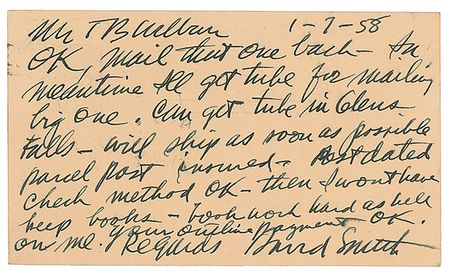 Mr T B 1-7-58
OK, mail that one back - In
meantime I'll get tube for mailing
big one. Can get tube in Glens
Falls - will ship as soon as possible
parcel post insured - Post dated
check method OK - then I wont have
keep books - book work hard as hell
on me. Your outline payment OK.
Regards David Smith